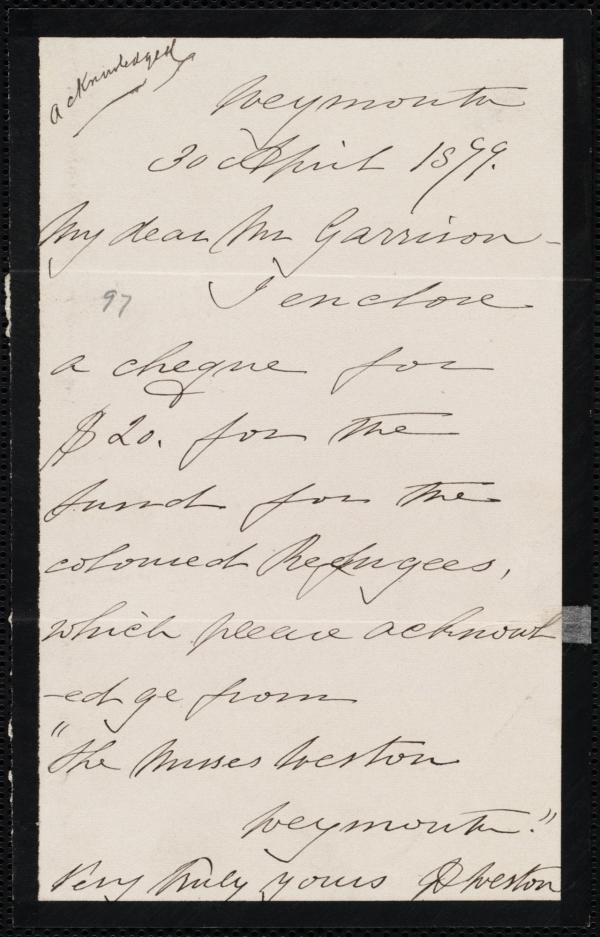 acknowledged
Weymouth
30 April 1879.
My dear Mr Garrison -
97
I enclose
a cheque for
$20. for the
fund for the
coloured Refugees,
which please acknowl
-edge from
"The Misses Weston
Weymouth."
Very truly yours D Weston